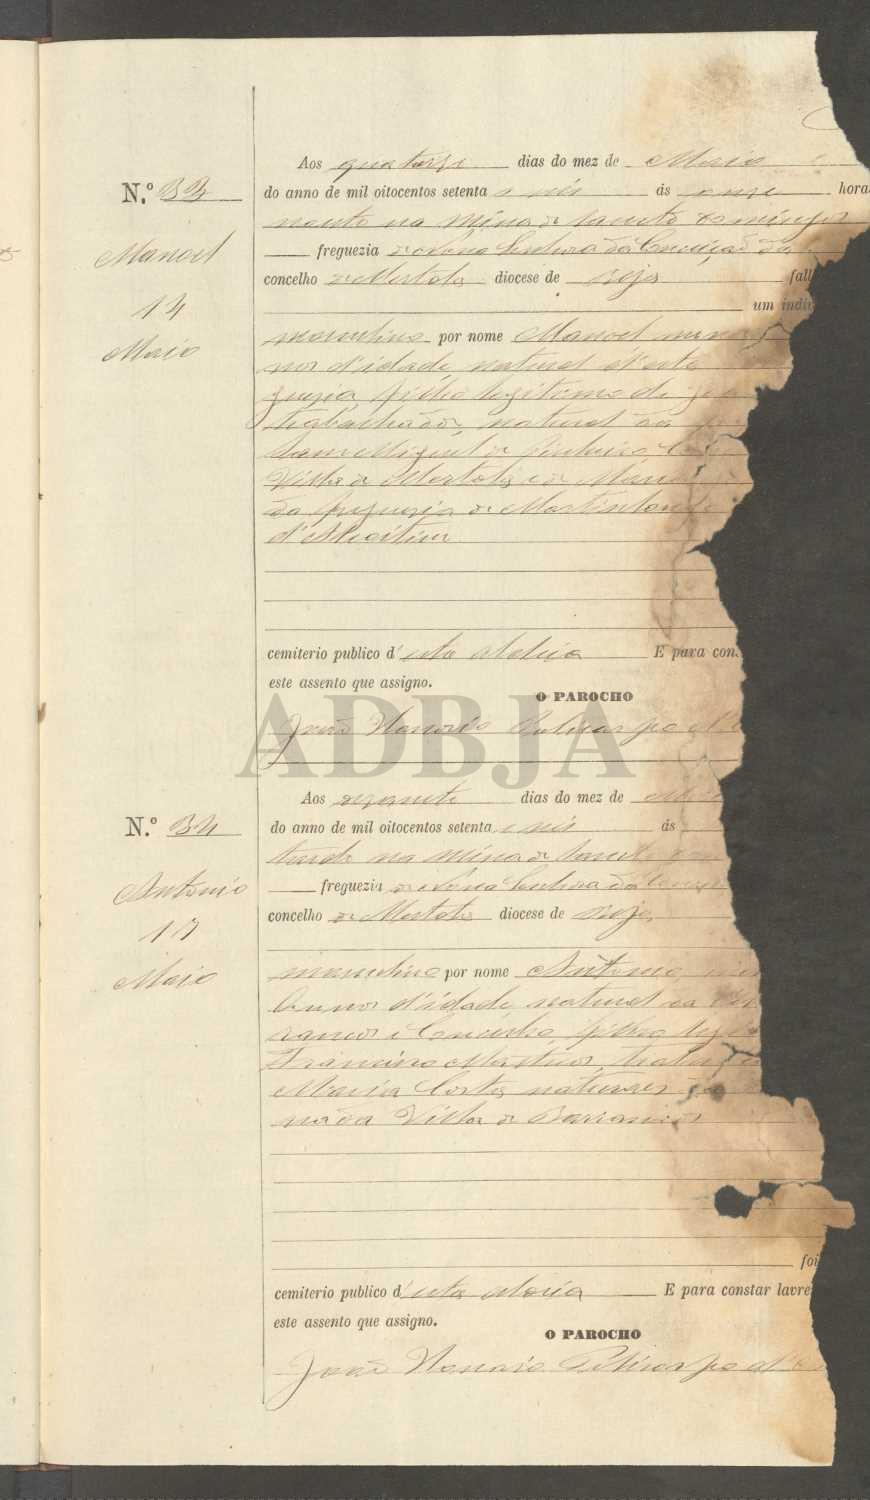 Aos quatorze dias do mez de Maio
N.º 33
do anno de mil oitocentos setenta e seis ás onze hora
noute na Mina de Sancto Domingos
Manoel
freguezia de Nossa Senhora da Conceição da
concelho de Mertola diocese de Beja fall
14
um indi
Maio
masculino por nome Manoel
nos d'idade, natural d'esta
guezia, filho legitimo de
trabalhador, natural da
Sam Miguel do Pinheiro
Villa de Mertola e de
da freguezia de Martinlongo
d'Alcoitim
cemiterio publico d'esta Aldeia E para con
este assento que assigno.
O PAROCHO
João Honorio Policarpo d'
ADBJA
Aos dezasete dias do mez de
N.º 34
do anno de mil oitocentos setenta e seis ás
tarde na Mina de Sancto
Antonio
freguezia de Nossa Senhora da
concelho de Mertola diocese de Beja
17
Maio
masculino por nome Antonio
annos d'idade natural da
filho
Francisco Martins,
Maria Cortes naturaes
Villa de Barrancos
foi
cemiterio publico d'esta Aldeia E para constar lavre
este assento que assigno.
O PAROCHO
João Honorio Policarpo d'